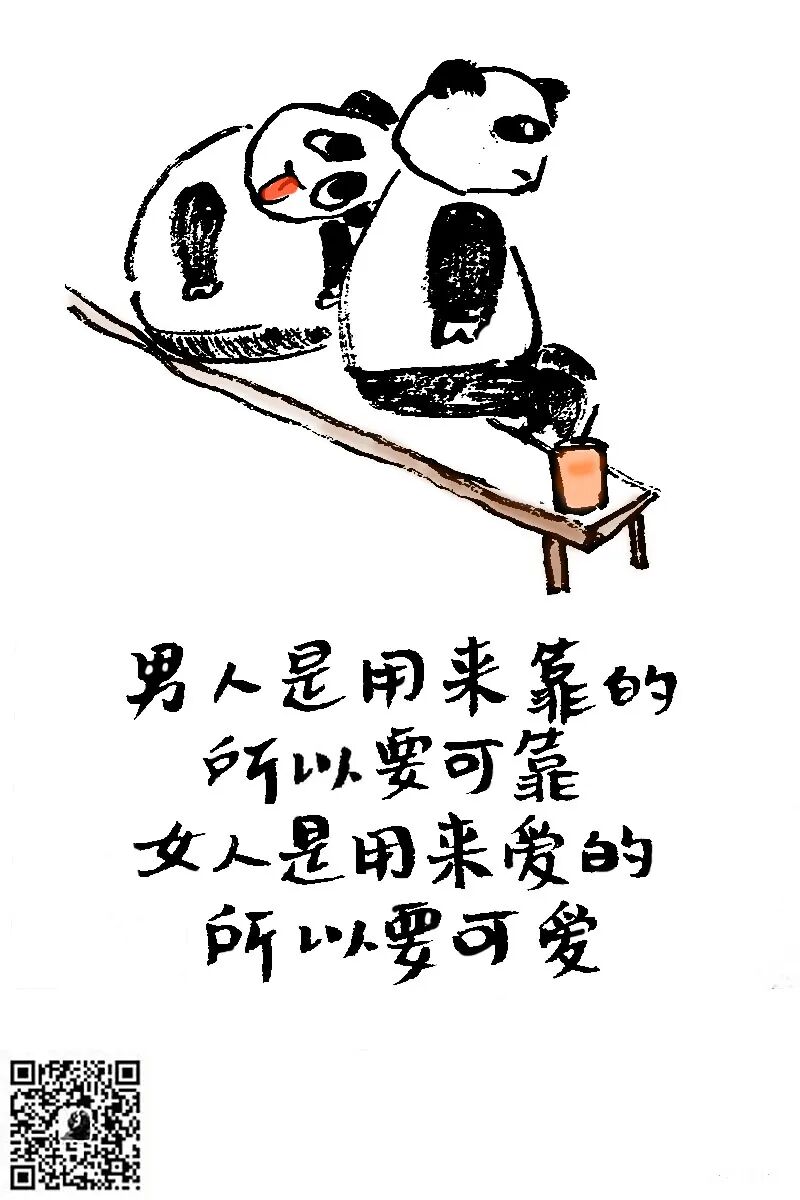 男人是用来靠的
所以要可靠
女人是用来爱的
所以要可爱